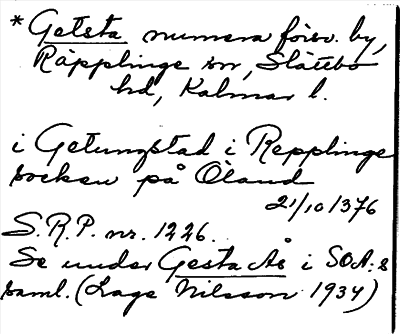 * Getsta numera försv. by,
Räpplinge sn, Slättbo
hd, Kalmar l.
i Getungstad i Repplinge
socken på Öland
21/10 1376
S.R.P. nr. 1226.
Se under Gesta Ås i SOA:s
saml. (Lage Nilsson 1934)